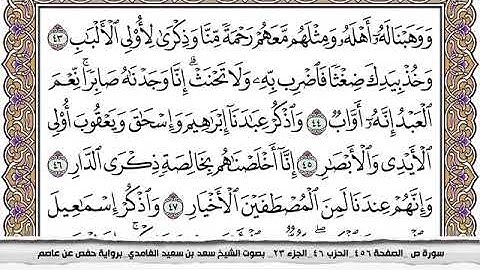 وَوَهَبْنَا لَهُۥٓ أَهْلَهُۥ وَمِثْلَهُم مَّعَهُمْ رَحْمَةً مِّنَّا وَذِكْرَىٰ لِأُو۟لِى ٱلْأَلْبَـٰبِ ٤٣
وَخُذْ بِيَدِكَ ضِغْثًا فَٱضْرِب بِّهِۦ وَلَا تَحْنَثْ ۗ إِنَّا وَجَدْنَـٰهُ صَابِرًا ۚ نِّعْمَ
ٱلْعَبْدُ ۖ إِنَّهُۥٓ أَوَّابٌ ٤٤ وَٱذْكُرْ عِبَـٰدَنَآ إِبْرَٰهِيمَ وَإِسْحَـٰقَ وَيَعْقُوبَ أُو۟لِى
ٱلْأَيْدِى وَٱلْأَبْصَـٰرِ ٤٥ إِنَّآ أَخْلَصْنَـٰهُم بِخَالِصَةٍ ذِكْرَى ٱلدَّارِ ٤٦
وَإِنَّهُمْ عِندَنَا لَمِنَ ٱلْمُصْطَفَيْنَ ٱلْأَخْيَارِ ٤٧ وَٱذْكُرْ إِسْمَـٰعِيلَ
سورة ص _الصفحة ٤٥٦_ الحزب ٤٦ _الجزء ٢٣_ بصوت الشيخ سعد بن سعيد الغامدي_ برواية حفص عن عاصم